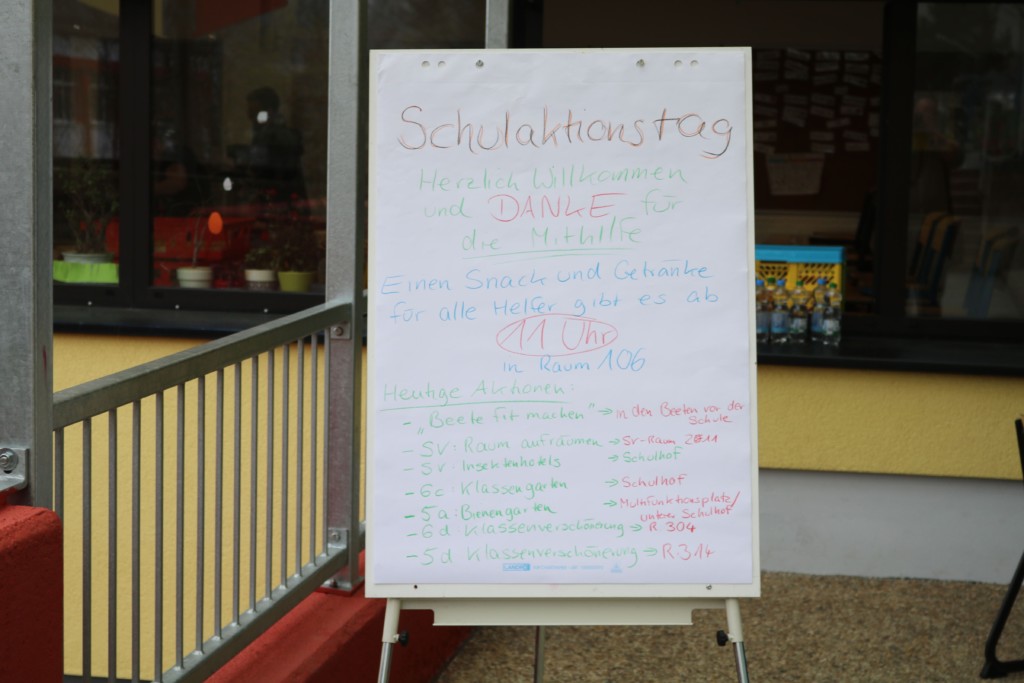 Schulaktionstag
Herzlich Willkommen
und DANKE für
die Mithilfe
Einen Snack und Getränke
für alle Helfer gibt es ab
11 Uhr
in Raum 106
Heutige Aktionen:
- „Beete fit machen" → in den Beeten vor der
Schule
- SV: Raum aufräumen → SV-Raum 2011
- SV: Insektenhotels → Schulhof
- 6c Klassengarten → Schulhof
- 5a: Bienengarten → Multifunktionsplatz/
unterer Schulhof
- 6d Klassenverschönerung → R. 304
- 5d Klassenverschönerung → R. 314
LANDRÉ